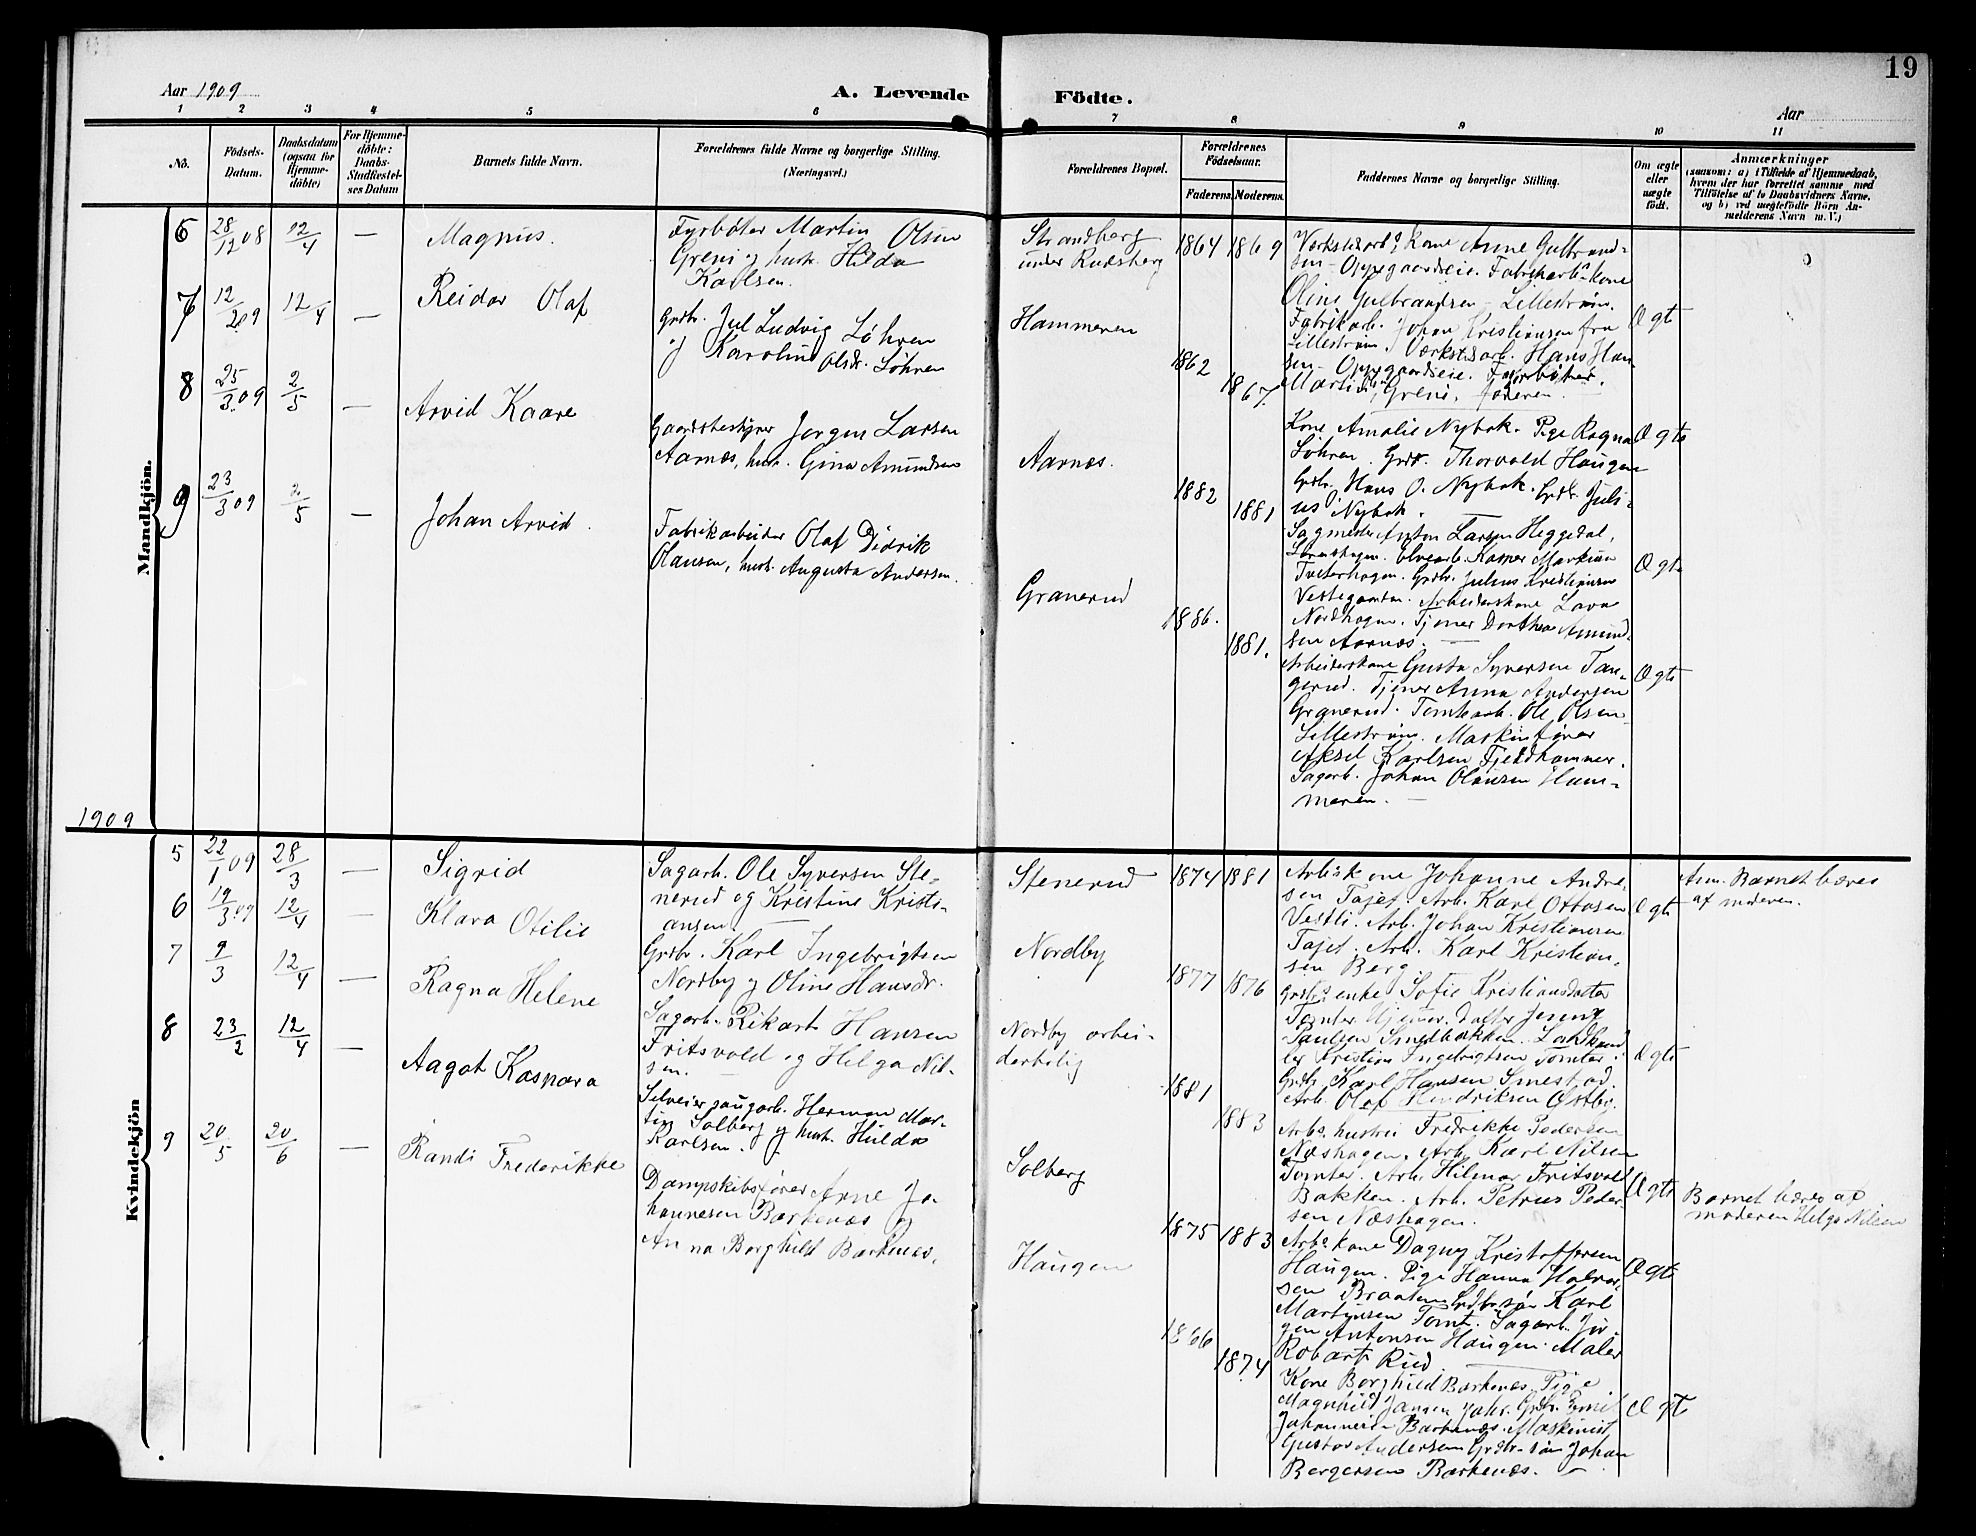 19
Aar 1909
A. Levende
Födte.
Aar
1 2 3 4 5 6 7 8 9 10 11
No.
Födsels-
Datum.
Daabsdatum
(ogsaa for
Hjemme-
döbte)
For Hjemme-
döbte:
Daabs-
Stadfæstel-
ses Datum
Barnets fulde Navn.
Forældrenes fulde Navne og borgerlige Stilling.
(Næringsvei.)
Forældrenes Bopæl.
Forældrenes
Födselsaar.
Faderens.
Moderens.
Faddernes Navne og borgerlige Stilling.
Om ægte
eller
uægte
födt.
Anmærkninger
(saasom: a) i Tilfælde af Hjemmedaab,
hvem der har forrettet samme, med
Tilföielse af to Daabsvidners Navne.
og b) ved uægtefödte Börn An-
melderens Navn m. V.)
Mandkjön.
6 28/12 08 12/4 — Magnus.
Fyrbøter Martin Olsen
Greni og hustr. Hilda
Karlsen.
Strandberg
under Rudsberg
1864 1869
Værkstarb. Kone Anne Gulbrand-
sen Oppegaardseie. Fabrikarb. kone
Oline Gulbrandsen Lillestrøm.
Fabrikarb. Johan Kristiansen fra
Lillestrøm. Værkstarb. Hans Han-
sen Oppegaardseie. Fyrbøter
Martin Greni, faderen.
Ægt
7 12/2 09 12/4 — Reidar Olaf
Grdbr. Jul Ludvig Løhren
og Karoline Olsdr. Løhren
Hammeren
1862 1867.
Kone Amalie Nybak. Pige Ragna
Løhren. Grdbr. Thorvald Haugen
Grdbr. Hans O. Nybak. Grdbr. Juli-
us Nybak.
Ægte
8 25/3 09 2/5 — Arvid Kaare
Gaardsbestyrer Jørgen Larsen
Aarnæs, hustr. Gina Amundsen
Aarnæs.
1882 1881
Sagmester Anton Larsen Heggedal,
Martin
Grdbr. Julius Kristiansen
Arbeiderkone Lava
Nordhagen. Tjener Dorthea Amund-
sen Aarnæs.
Ægte
9 23/3 09 2/5 — Johan Arvid.
Fabrikarbeider Olaf Didrik
Olausen, hustr. Augusta Andersen.
Granerud
1886. 1881.
Arbeiderkone Gusta Syversen Tan-
gerud. Tjener Anna Andersen
Granerud. Tomtearb. Ole Olsen
Lillestrøm. Maskinfører
Aksel Karlsen Fjeldhammer.
Sagarb. Johan Olausen Ham-
meren. —
Ægte
1909
Kvindekjön
5 22/1 09 28/3 — Sigrid
Sagarb. Ole Syversen Ste-
nerud og Kristine Kristi-
ansen
Stenerud
1874 1881
Arb. kone Johanne Andre-
sen Tajet. Arb. Karl Ottosen
Vestli. Arb. Johan Kristiansen
Tajet. Arb. Karl Kristian-
sen Berg.
Ægte
Anm. Barnet bæres
af moderen.
6 19/3 09 12/4 — Klara Otilie
Grdbr. Karl Ingebrigtsen
Nordby og Oline Hansdr.
Nordby
1877 1876
Grdbr. enke Sofie Kristiansdatter
Tomter. Hjemmev. datter Jensine
Paulsen Smedbakken. Landhand-
ler Kristian Ingebrigtsen Tomter.
Grdbr. Karl Hansen Smestad.
Arb. Olaf Hendriksen Østby.
Ægte
7 9/3 12/4 — Ragna Helene
Sagarb. Rikart Hansen
Fritsvold og Helga Nil-
sen.
Nordby arbei-
derbolig
1881 1883
Arb. hustru Fredrikke Pedersen
Næshagen. Arb. Karl Nilsen
Tomter. Arb. Hilmar Fritsvold
Bakken. Arb. Petrus Peder-
sen Næshagen.
Ægte
Barnet bæres af
moderen Helga Nilsen
8 23/2 12/4 — Aagot Kaspara
Herman Mar-
tin Solberg og hust. Hulda
Karlsen.
Solberg
1875 1883
Arb. kone Dagny Kristoffersen
Haugen. Pige Hanna Halvor-
sen Braaten. Grdbr. søn Karl
Martinsen Tomt. Sagarb. Jør-
gen Antonsen Haugen. Maler
Robart Rud.
Ægte
9 20/5 20/6 — Randi Frederikke
Dampskibsfører Arne Jo-
hannesen Barkenæs og
Anna Borghild Barkenæs.
Haugen
1866 1874
Kone Borghild Barkenæs. Pige
Magnhild Jansen Grdbr. Emil
Johannesen Barkenæs. Maskinist
Gustav Andersen Grdbr. søn Johan
Bergersen Barkenæs. —
Ægt